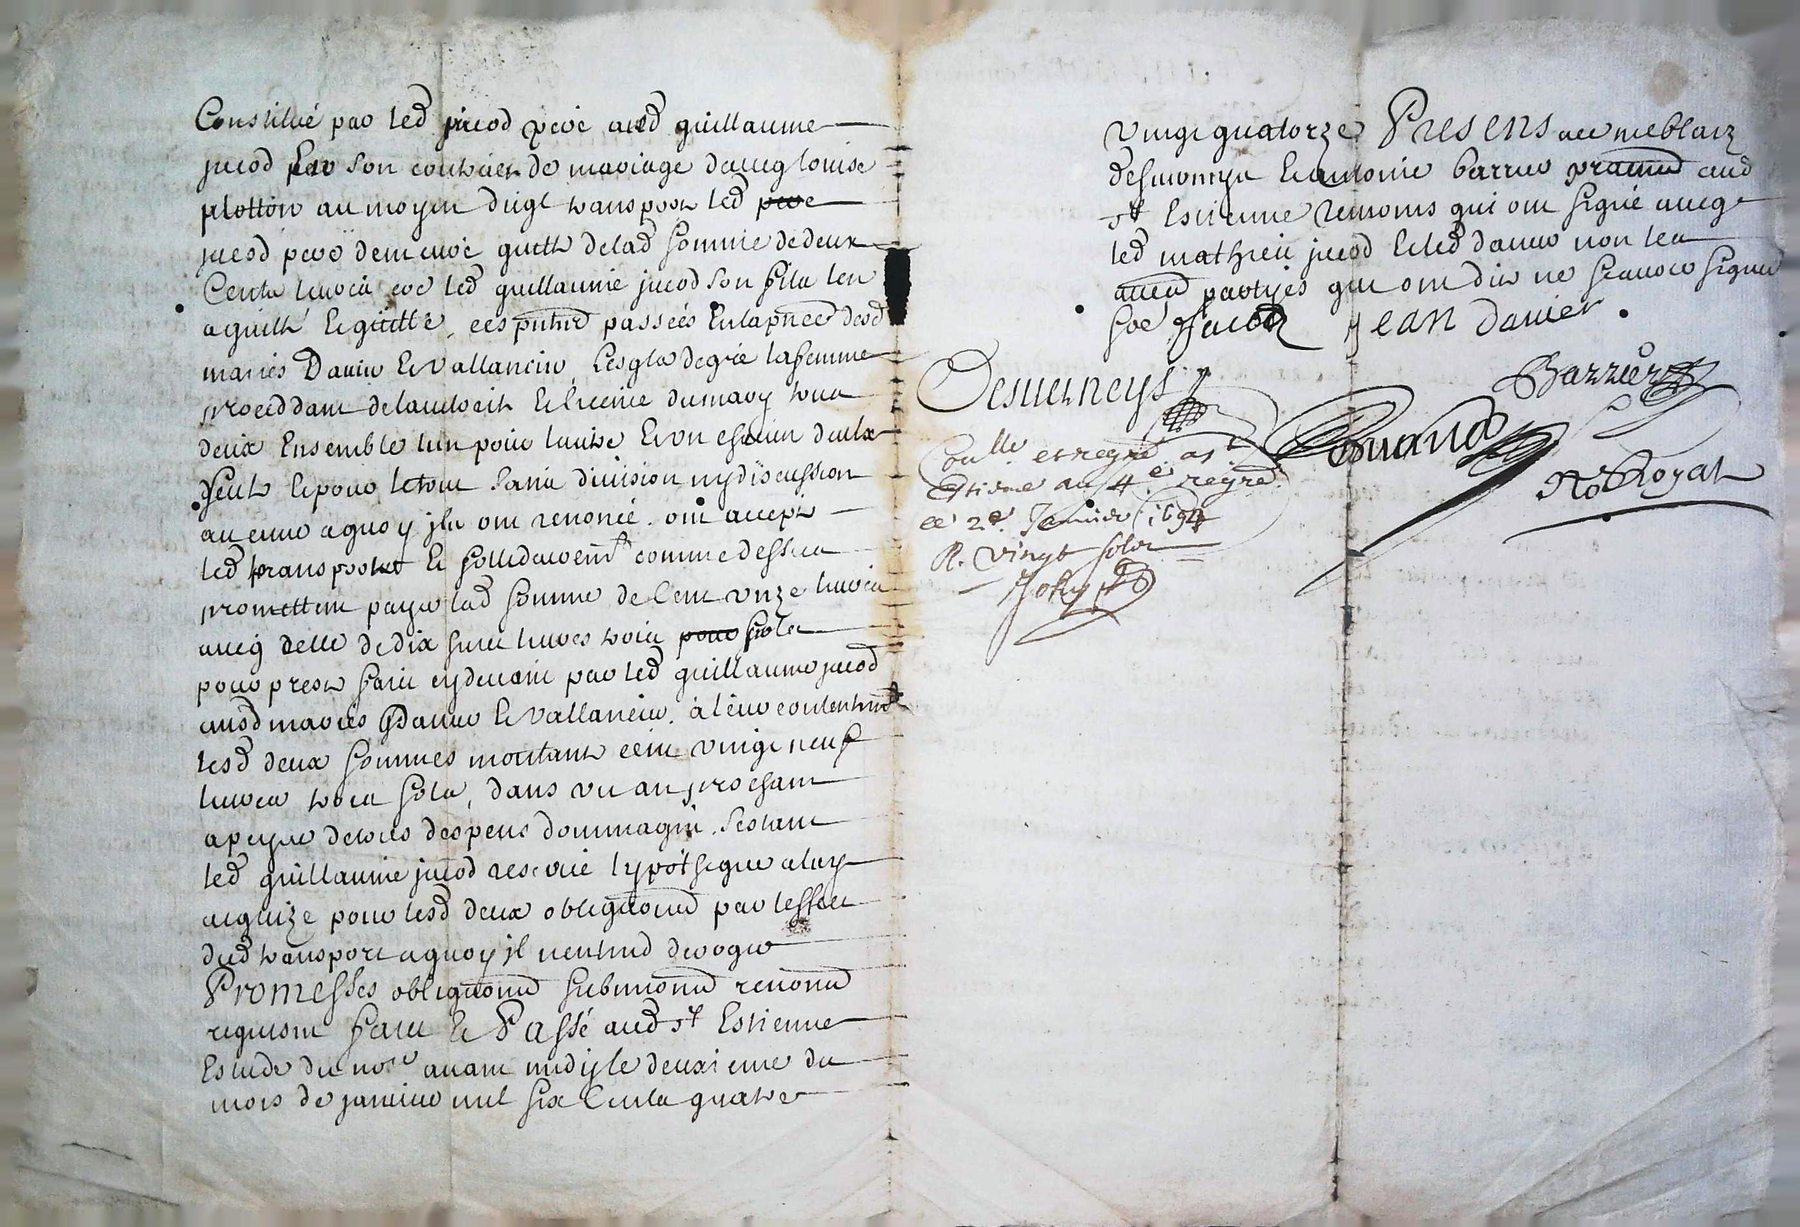 Constitué par led jacod pere aud guillaume
jacod par son contract de mariage avecq louise
plotton au moyen duql transport led pere
jacod pere demeure quitte de lad somme de deux
Cents livres et led guillaume jacod son fils len
a quitté et quitte, ces pntes passées en la pnce desd
mariés Danier et vallancier, lesqls de gré la femme
proceddant de lauctorité et licence du mary tous
deux Ensemble lun pour lautre et un chacun deulx
seul et pour le tout sans division ny discussion
aucune a quoy jls ont renoncé. ont accepté
led transport et sollidairemt comme dessus
promettent payer lad somme de Cent unze livres
avecq celle de dix huict livres trois sols
pour prest faict cy devant par led guillaume jacod
ausd mariés Danier et vallancier, à leur contentemt
lesd deux sommes montant cent vingt neuf
livres trois sols, dans un an prochain
a peyne de tous despens dommages. Sestant
led guillaume jacod reservé lypotheque a luy
acquize pour lesd deux obligations par leffect
dud transport a quoy il nentend deroger
Promesses obligations submissions renons
requisons faict et Passé aud st Estienne
Estude du nore avant midy le deuxieme du
mois de janvier mil six Cents quatre
vingt quatorze Presens me blaiz
desverneys et antoine barrier praticien aud
st Estienne temoins qui ont signé avecq
led mathieu jacod et led danier non les
autres partyes qui ont dit ne scavoir signer
Jacod Jean danier
Desverneys
Barrier
Conlle et regré a st
Estienne au 4e regre
ce 2e. Janvier 1694
R. vingt sols
Royal